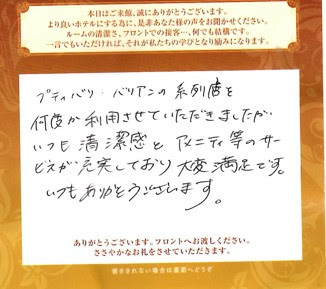 本日はご来館、誠にありがとうございます。
より良いホテルにする為に、是非あなた様の声をお聞かせください。
ルームの清潔さ、フロントでの接客…、何でも結構です。
一言でもいただければ、それが私たちの学びとなり励みになります。
プティバリ・バリアンの系列店を
何度か利用させていただきましたが
いつも清潔感とアメニティ等のサー
ビスが充実しており大変満足です。
いつもありがとうございます。
ありがとうございます。フロントへお渡しください。
ささやかなお礼をさせていただきます。
書ききれない場合は裏面へどうぞ